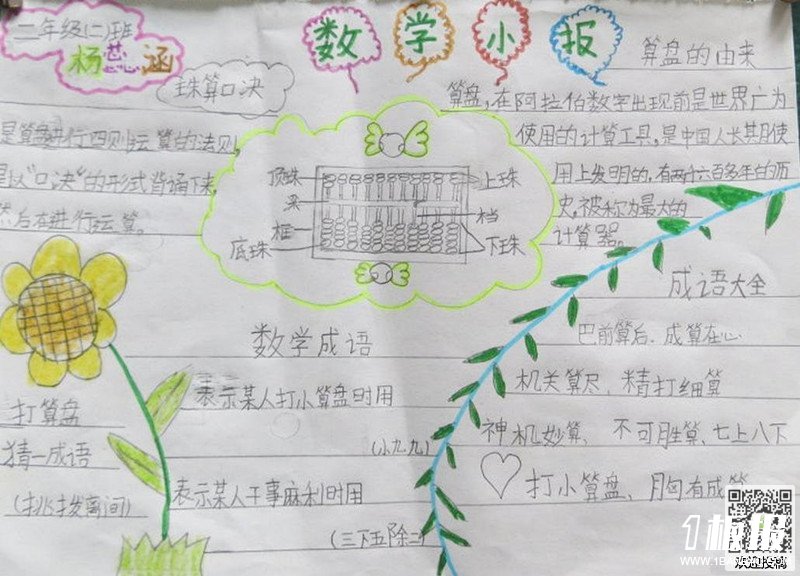 二年级(二)班
杨蕊涵
数学小报
珠算口决
是算盘进行四则运算的法则,
是以“口决”的形式背诵下来,
然后在进行运算。
算盘的由来
算盘,在阿拉伯数字出现前是世界广为
使用的计算工具,是中国人长其期使
用上发明的,有两千六百多年的历
史,被称为最大的
计算器。
顶珠
梁
框
底珠
上珠
档
下珠
成语大全
巴前算后.成算在心
机关算尽、精打细算
神机妙算、不可胜算、七上八下
打小算盘、胸有成算
数学成语
表示某人打小算盘时用
(小九九)
表示某人干事麻利时用
(三下五除二)
打算盘
猜一成语
(挑拨离间)
欢迎投稿